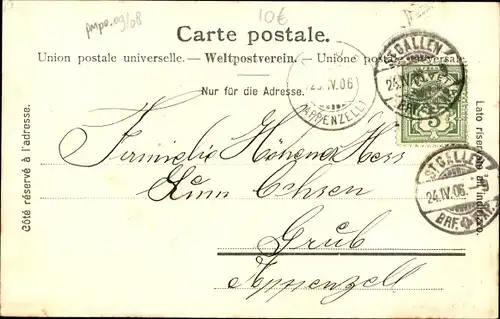 pmpo.09/08
10€
Carte postale.
Union postale universelle. — Weltpostverein. — Unione postale universale.
Nur für die Adresse.
Côté réservé à l'adresse.
Lato riservato all'indirizzo.
ST. GALLEN
24.IV.06
BRF.
5
25.IV.06
(APPENZELL)
ST. GALLEN
24.IV.06.
BRF.
Hess
Zum Ochsen
Grub
Appenzell